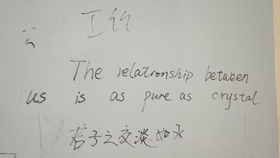 The relationship between
us is as pure as crystal
君子之交淡如水